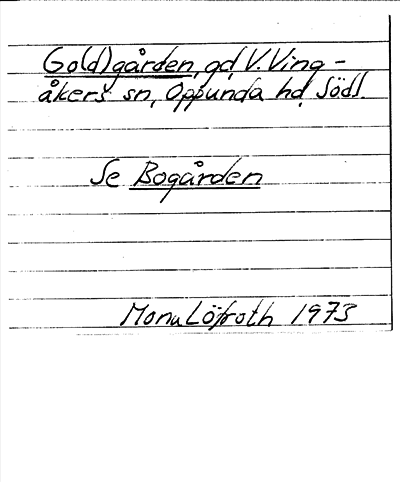 Go(d)gården, gd, V. Ving-
åkers sn, Oppunda hd, Södl.
Se Bogården
Mona Löfroth 1973